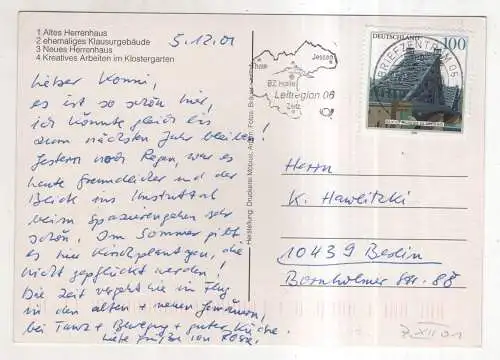 1 Altes Herrenhaus
2 ehemaliges Klausurgebäude
3 Neues Herrenhaus
4 Kreatives Arbeiten im Klostergarten
5.12.01
Lieber Konni,
es ist so schön hier,
ich könnte gleich bis
zum nächsten Jahr bleiben!
Gestern noch Regen, war es
heute freundlicher und der
Blick ins Unstruttal
beim Spazierengehen sehr
schön. Im Sommer gibt
es hier Kirschplantagen, die
nicht gepflückt werden!
Die Zeit vergeht hier im Flug
in den alten + neuen Gemäuern,
bei Tanz + Bewegung + guter Küche.
Liebe Grüße von
Herstellung: Druckerei Möbius, Artern Fotos:
DEUTSCHLAND
100
BRIEFZENTRUM 06
Jessen
BZ Halle
Leitregion 06
Zeitz
Herrn
K. Hawlitzki
10439 Berlin
Bornholmer Str. 88
7.XII.01